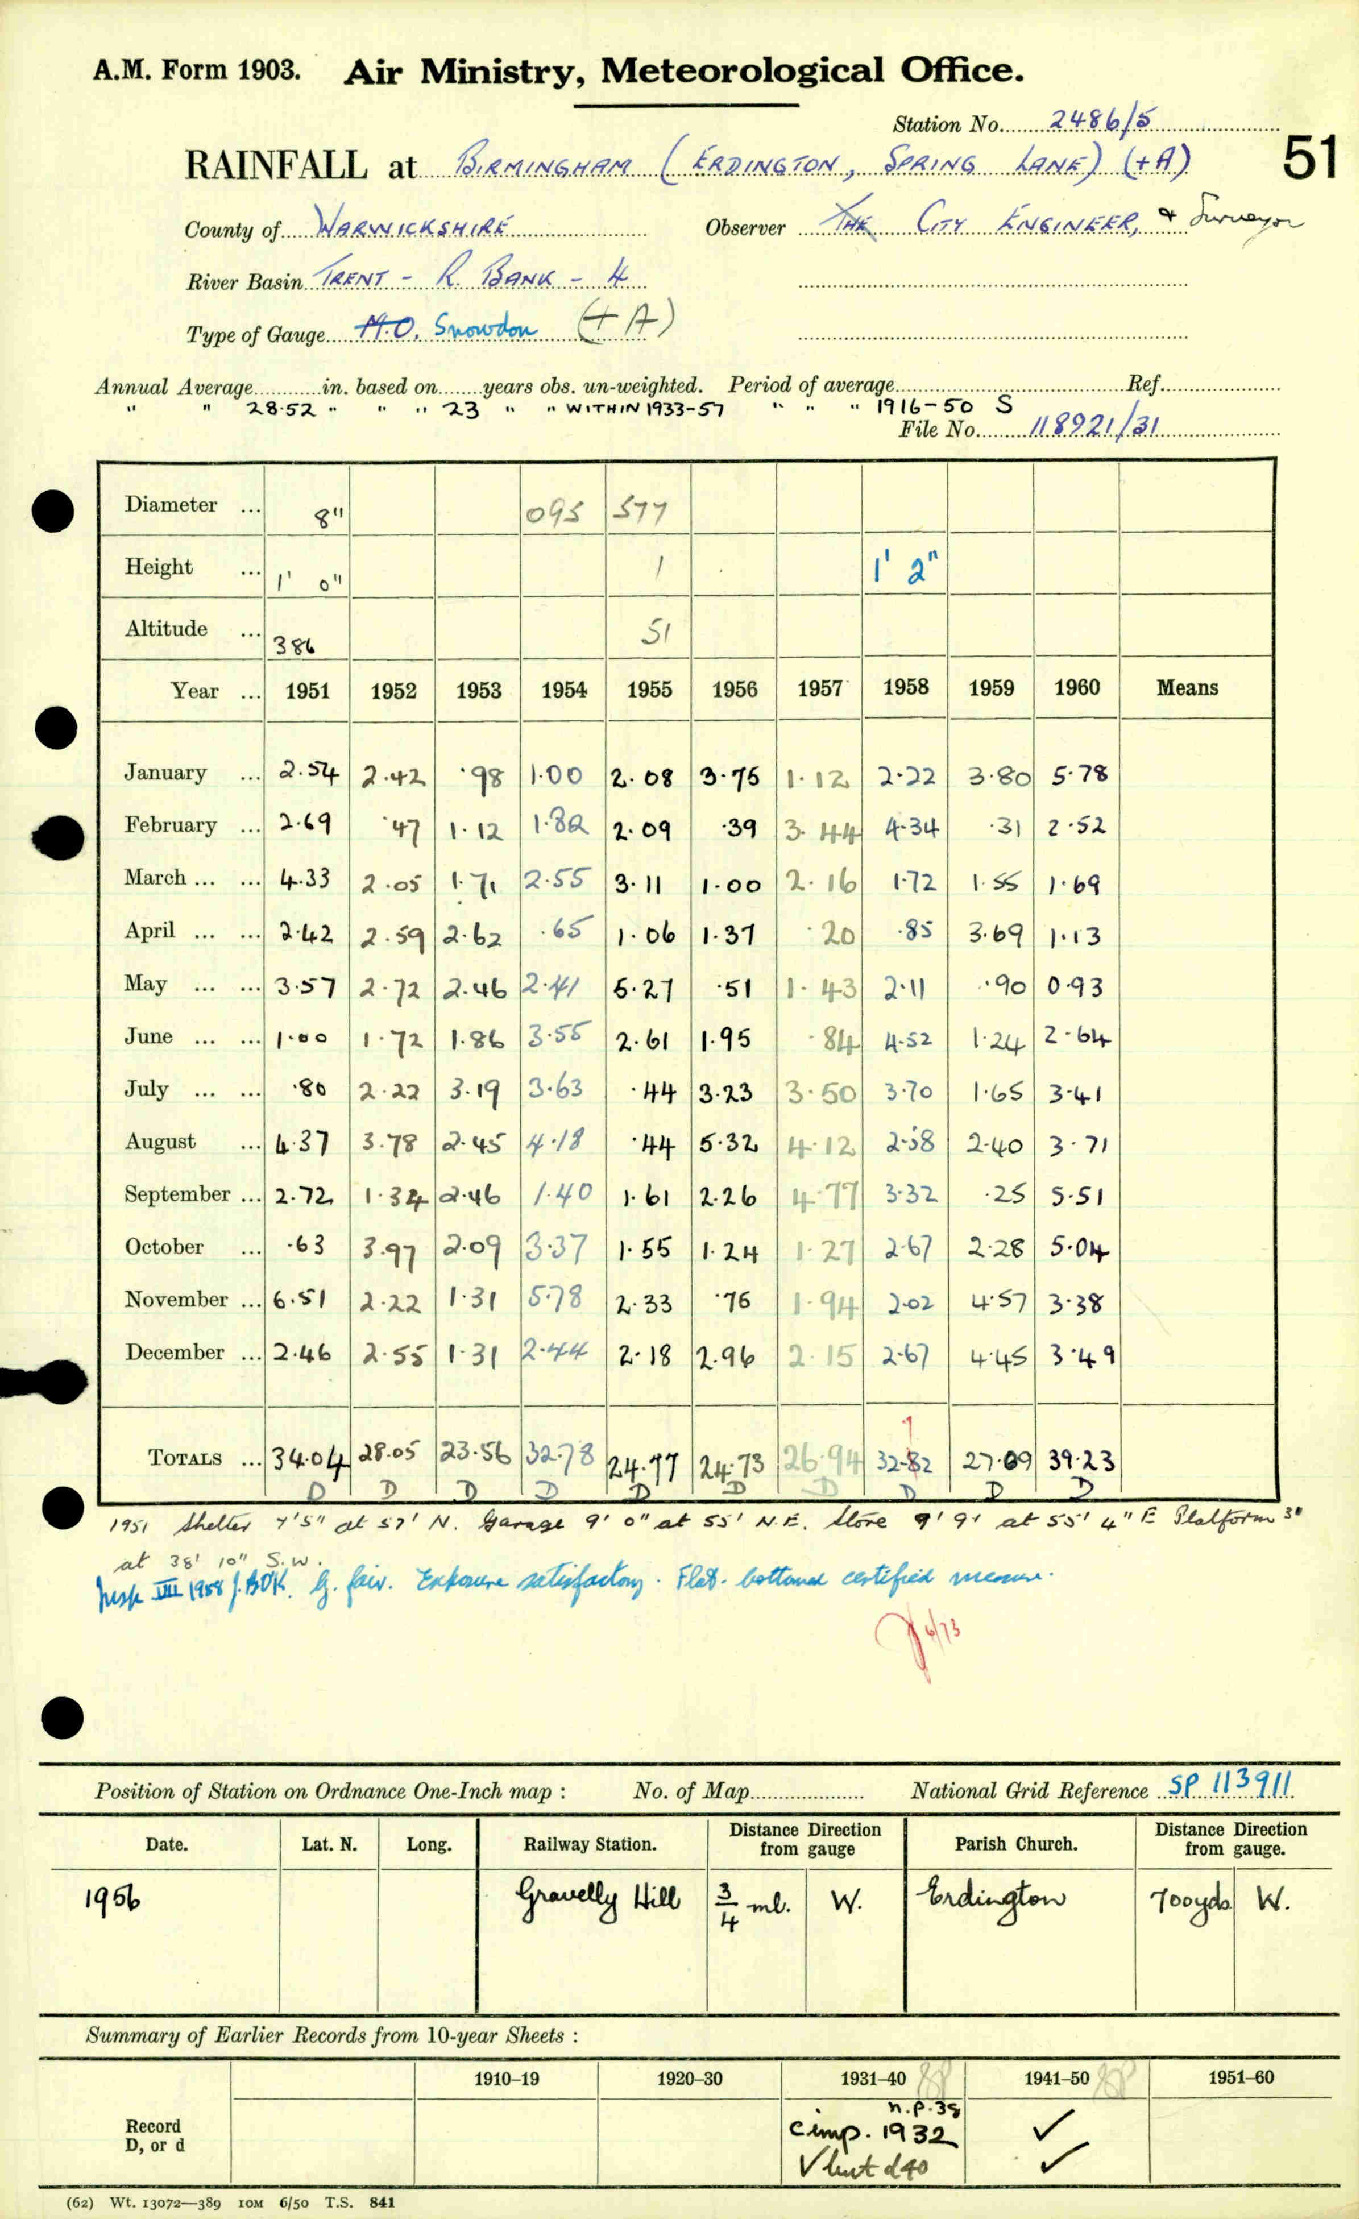 A.M. Form 1903. Air Ministry, Meteorological Office.
Station No. 2486/5
RAINFALL at BIRMINGHAM (ERDINGTON, SPRING LANE) (+A) 51
County of WARWICKSHIRE Observer THE CITY ENGINEER, & Surveyor
River Basin TRENT - R. BANK - 4
Type of Gauge M.O. Snowdon (+A)
Annual Average in. based on years obs. un-weighted. Period of average Ref.
" " 28.52 " " " 23 " " WITHIN 1933-57 " " " 1916-50 S
File No. 118921/31
Diameter ... 8" 095 577
Height ... 1' 0" 1 1' 2"
Altitude ... 386 51
Year ... 1951 1952 1953 1954 1955 1956 1957 1958 1959 1960 Means
January ... 2.54 2.42 .98 1.00 2.08 3.75 1.12 2.22 3.80 5.78
February ... 2.69 .47 1.12 1.82 2.09 .39 3.44 4.34 .31 2.52
March ... ... 4.33 2.05 1.71 2.55 3.11 1.00 2.16 1.72 1.55 1.69
April ... ... 2.42 2.59 2.62 .65 1.06 1.37 .20 .85 3.69 1.13
May ... ... 3.57 2.72 2.46 2.41 5.27 .51 1.43 2.11 .90 0.93
June ... ... 1.00 1.72 1.86 3.55 2.61 1.95 .84 4.52 1.24 2.64
July ... ... .80 2.22 3.19 3.63 .44 3.23 3.50 3.70 1.65 3.41
August ... 4.37 3.78 2.45 4.18 .44 5.32 4.12 2.58 2.40 3.71
September ... 2.72 1.34 2.46 1.40 1.61 2.26 4.77 3.32 .25 5.51
October ... .63 3.97 2.09 3.37 1.55 1.24 1.27 2.67 2.28 5.04
November ... 6.51 2.22 1.31 5.78 2.33 .75 1.94 2.02 4.57 3.38
December ... 2.46 2.55 1.31 2.44 2.18 2.96 2.15 2.67 4.45 3.49
1
TOTALS ... 34.04 28.05 23.56 32.78 24.77 24.73 26.94 32.82 27.09 39.23
D D D D D D D D D D
1951 Shelter 7'5" at 57' N. Garage 9' 0" at 55' N.E. Store 9' 9" at 55' 4" E Platform 3"
at 38' 10" S.W.
Insp VIII 1958 G. fair. Exposure satisfactory. Flat-bottomed certified measure.
6/73
Position of Station on Ordnance One-Inch map : No. of Map National Grid Reference SP 113911
Date. Lat. N. Long. Railway Station. Distance Direction from gauge Parish Church. Distance Direction from gauge.
1956 Gravelly Hill 3/4 ml. W. Erdington 700yds W.
Summary of Earlier Records from 10-year Sheets :
1910–19 1920–30 1931–40 1941–50 1951–60
Record D, or d
n.p.38
cimp. 1932 ✓
✓ but d40 ✓
(62) Wt. 13072—389 10M 6/50 T.S. 841